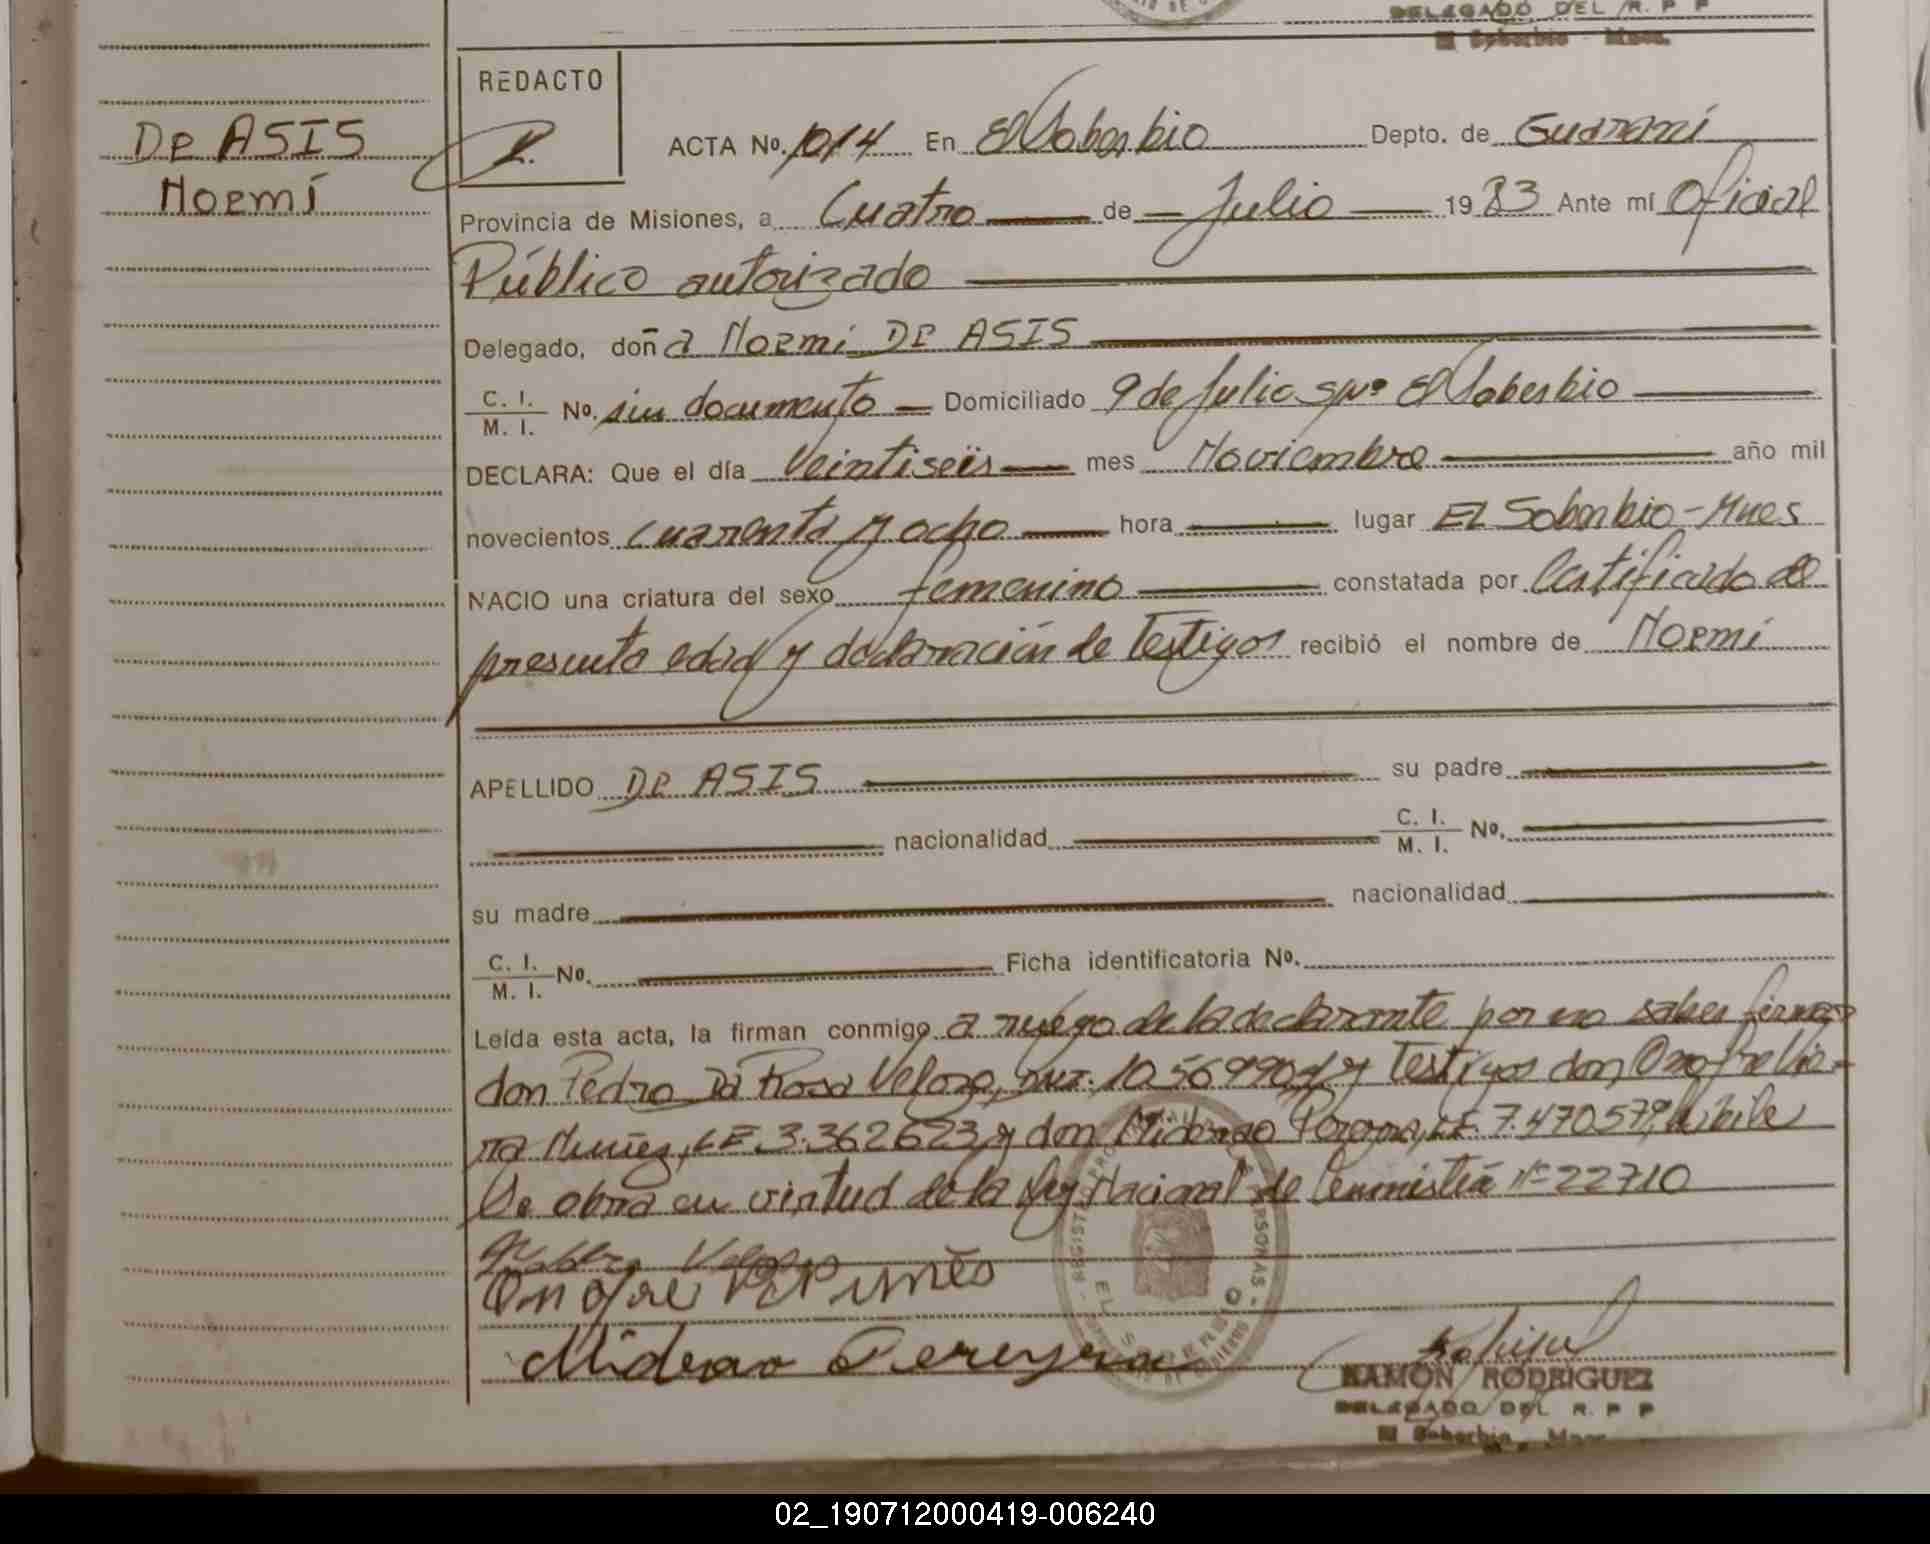 DELEGADO DEL R. P P
El Soberbio - Mnes.
DE ASIS
Noemí
REDACTO
ACTA No. 1014 En El Soberbio Depto. de Guaraní
Provincia de Misiones, a Cuatro de Julio 1983 Ante mí Oficial
Público autorizado
Delegado, doña Noemí DE ASIS
C. I.
M. I. No. sin documento Domiciliado 9 de Julio s/nº El Soberbio
DECLARA: Que el día Veintiseis mes Noviembre año mil
novecientos cuarenta y ocho hora lugar EL Soberbio - Mnes
NACIO una criatura del sexo femenino constatada por Certificado de
presunta edad y declaración de Testigos recibió el nombre de Noemí
APELLIDO DE ASIS su padre
nacionalidad C. I.
M. I. No.
su madre nacionalidad
C. I.
M. I. No. Ficha identificatoria No.
Leída esta acta, la firman conmigo a ruego de la declarante por no saber firmar
don Pedro Da Rosa Velozo, y Testigos don Onofre Vie-
ra Nunez, LE 3.362623 y don LE. 7.470.579,
De obra en virtud de la Ley Nacional de Nº 22710
Onofre
Pereyra
RAMON RODRIGUEZ
DELEGADO DEL R. P P
El Soberbio - Mnes
02_190712000419-006240